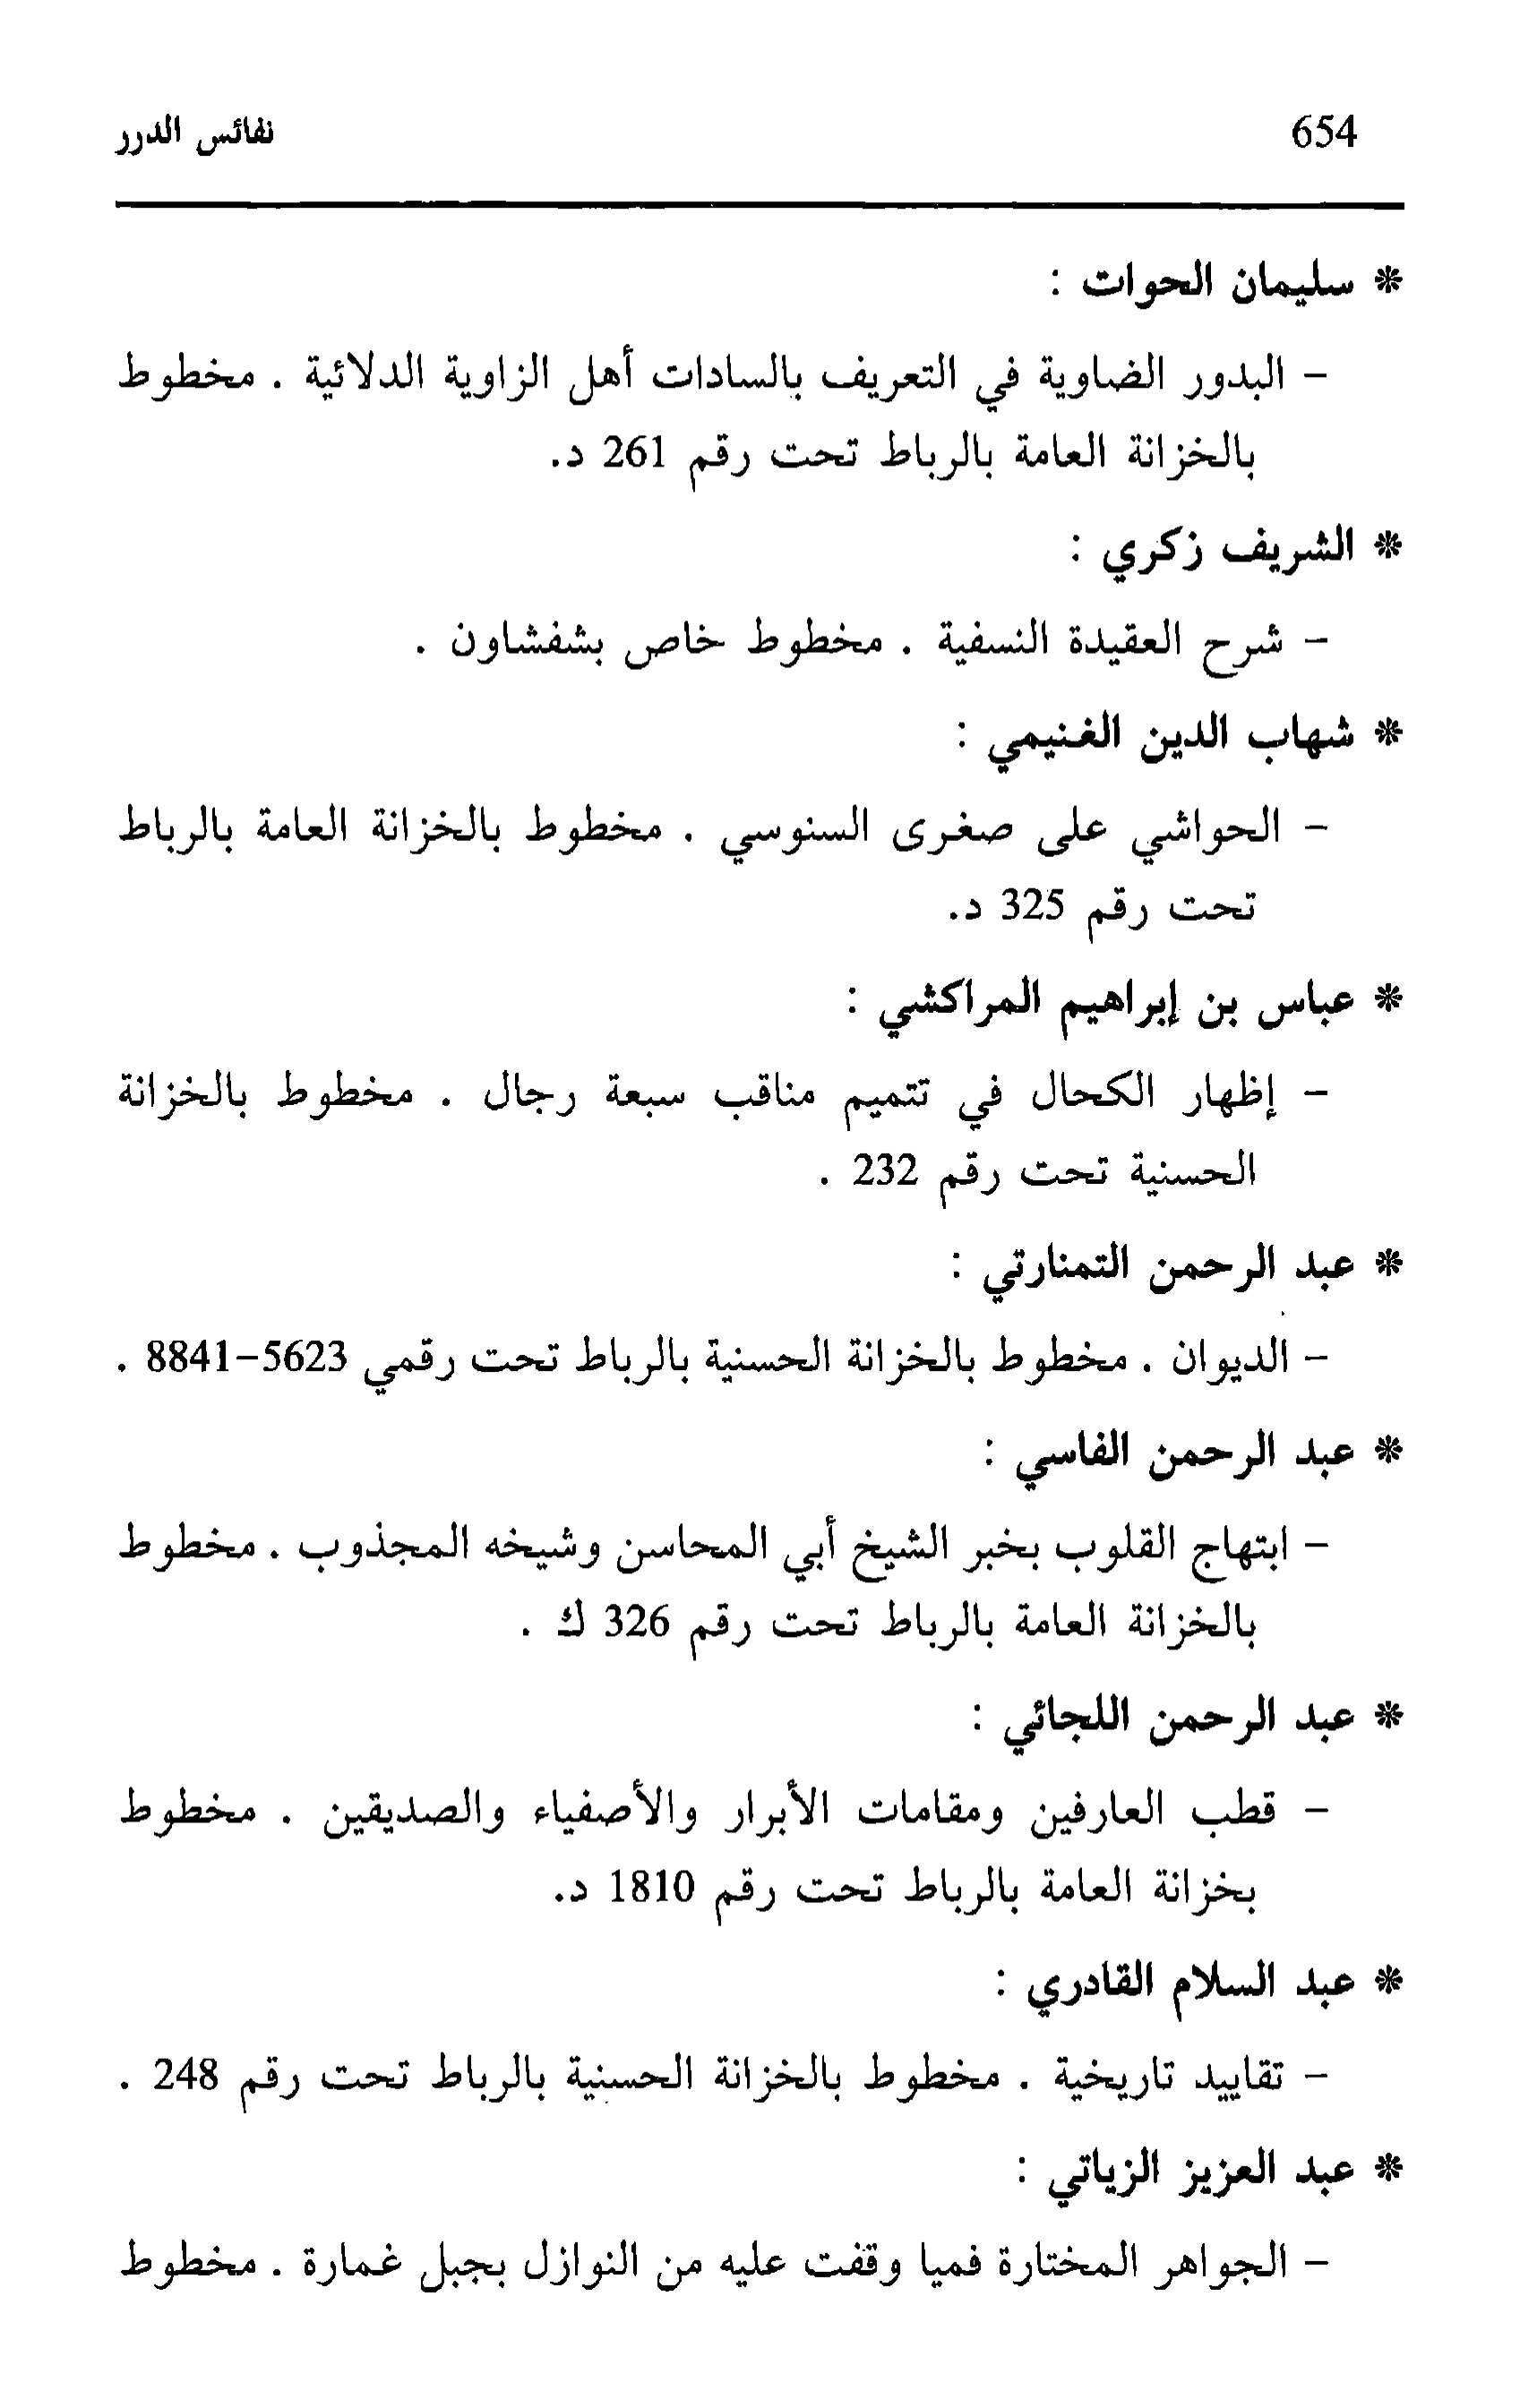 654 نفائس الدرر
* سليمان الحوات :
- البدور الضاوية في التعريف بالسادات أهل الزاوية الدلائية . مخطوط
بالخزانة العامة بالرباط تحت رقم 261 د.
* الشريف زكري :
- شرح العقيدة النسفية . مخطوط خاص بشفشاون .
* شهاب الدين الغنيمي :
- الحواشي على صغرى السنوسي . مخطوط بالخزانة العامة بالرباط
تحت رقم 325 د.
* عباس بن إبراهيم المراكشي :
- إظهار الكحال في تتميم مناقب سبعة رجال . مخطوط بالخزانة
الحسنية تحت رقم 232 .
* عبد الرحمن التمنارتي :
- الديوان . مخطوط بالخزانة الحسنية بالرباط تحت رقمي 5623-8841 .
* عبد الرحمن الفاسي :
- ابتهاج القلوب بخبر الشيخ أبي المحاسن وشيخه المجذوب . مخطوط
بالخزانة العامة بالرباط تحت رقم 326 ك .
* عبد الرحمن اللجائي :
- قطب العارفين ومقامات الأبرار والأصفياء والصديقين . مخطوط
بخزانة العامة بالرباط تحت رقم 1810 د.
* عبد السلام القادري :
- تقاييد تاريخية . مخطوط بالخزانة الحسنية بالرباط تحت رقم 248 .
* عبد العزيز الزياتي :
- الجواهر المختارة فميا وقفت عليه من النوازل بجبل غمارة . مخطوط